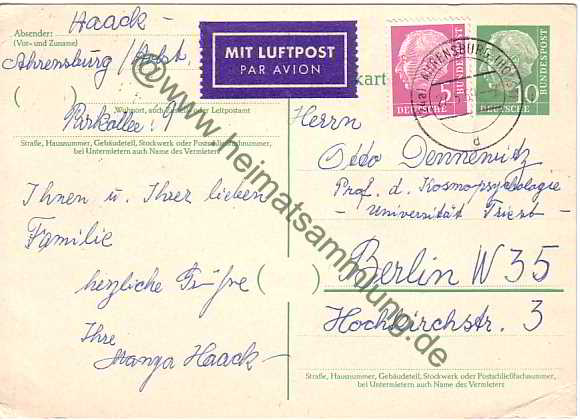 Absender:
Haack -
(Vor- und Zuname)
Ahrensburg / Holst
( )
Wohnort, auch Zustell- oder Leitpostamt
Birkallee 9
Straße, Hausnummer, Gebäudeteil, Stockwerk oder Postschließfachnummer,
bei Untermietern auch Name des Vermieters
MIT LUFTPOST
PAR AVION
karte
5
DEUTSCHE
BUNDESPOST
10
DEUTSCHE
BUNDESPOST
AHRENSBURG (HOLST)
d
Ihnen u. Ihrer lieben
Familie
herzliche Grüße
Ihre
Haack -
Herrn
Otto Dennewitz
Prof. d. Kosmopsychologie
- Universität Triest -
( ) Berlin W 35
Hochkirchstr. 3
Straße, Hausnummer, Gebäudeteil, Stockwerk oder Postschließfachnummer,
bei Untermietern auch Name des Vermieters
@www.heimatsammlung.de